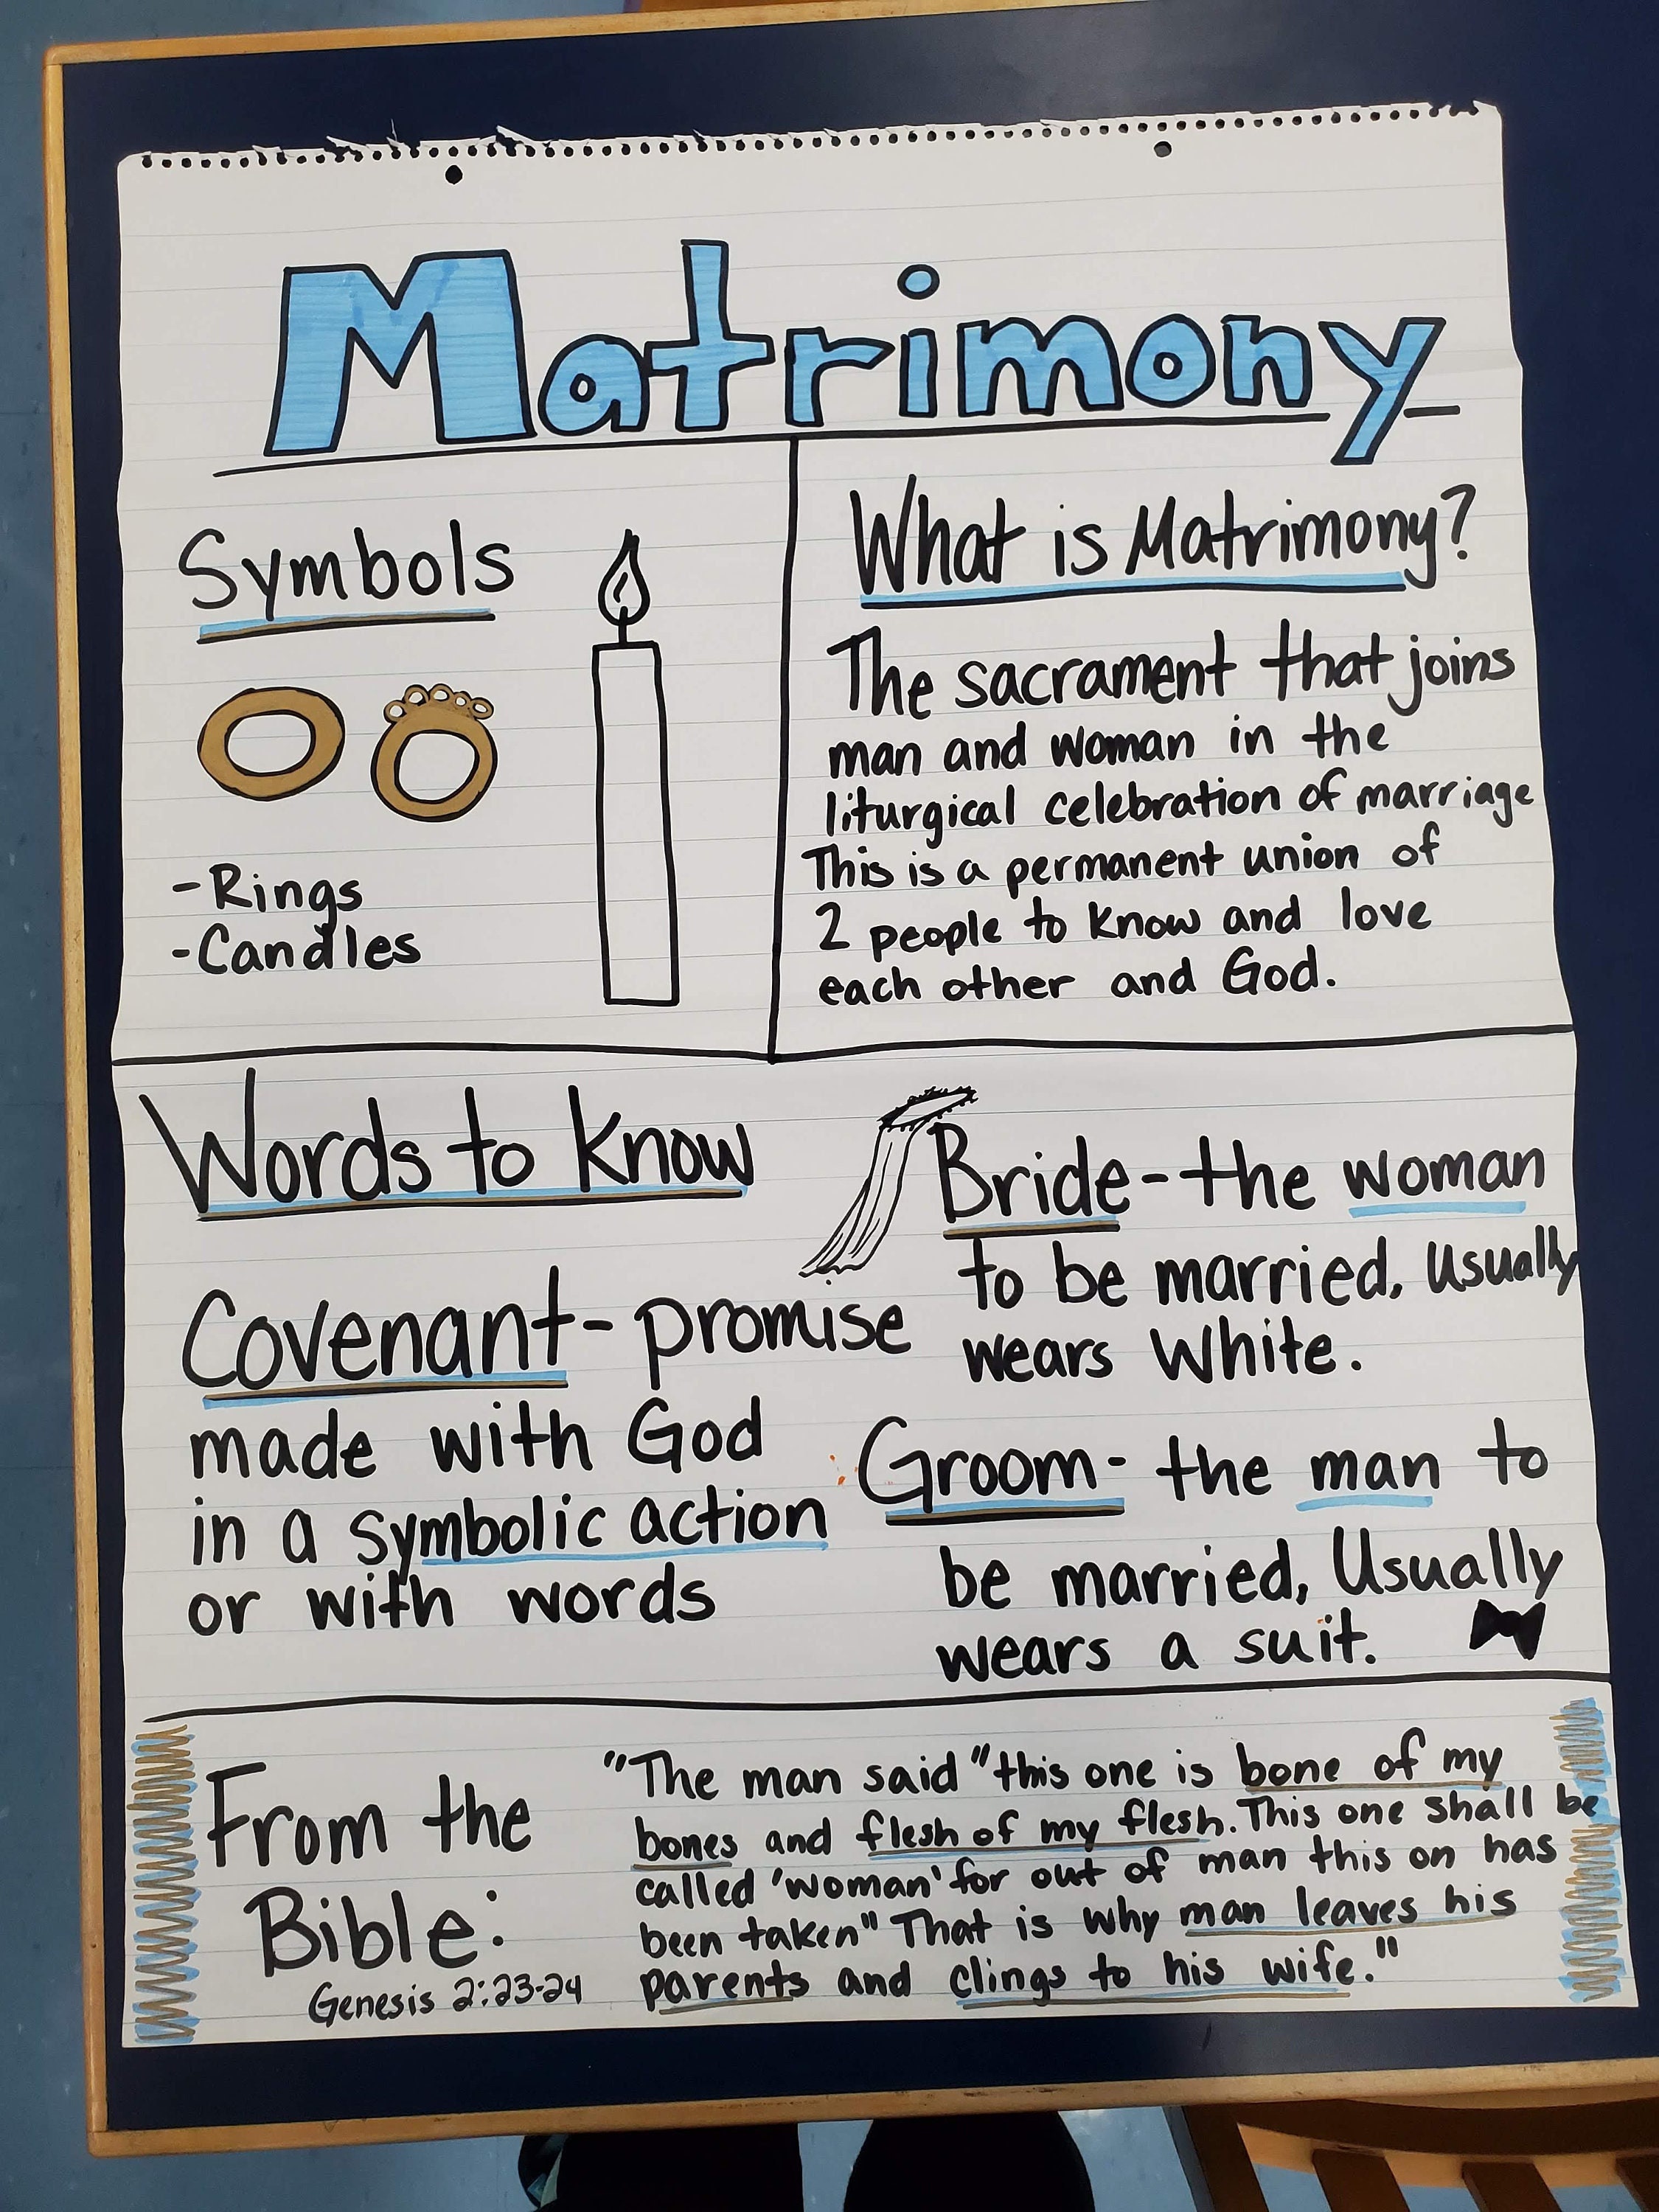 Matrimony
Symbols
-Rings
-Candles
What is Matrimony?
The sacrament that joins
man and woman in the
liturgical celebration of marriage
This is a permanent union of
2 people to know and love
each other and God.
Words to know
Covenant- promise
made with God
in a symbolic action
or with words
Bride-the woman
to be married, usually
wears white.
Groom- the man to
be married, Usually
wears a suit.
From the
Bible:
Genesis 2:23-24
"The man said "this one is bone of my
bones and flesh of my flesh. This one shall be
called 'woman' for out of man this on has
been taken" That is why man leaves his
parents and clings to his wife."